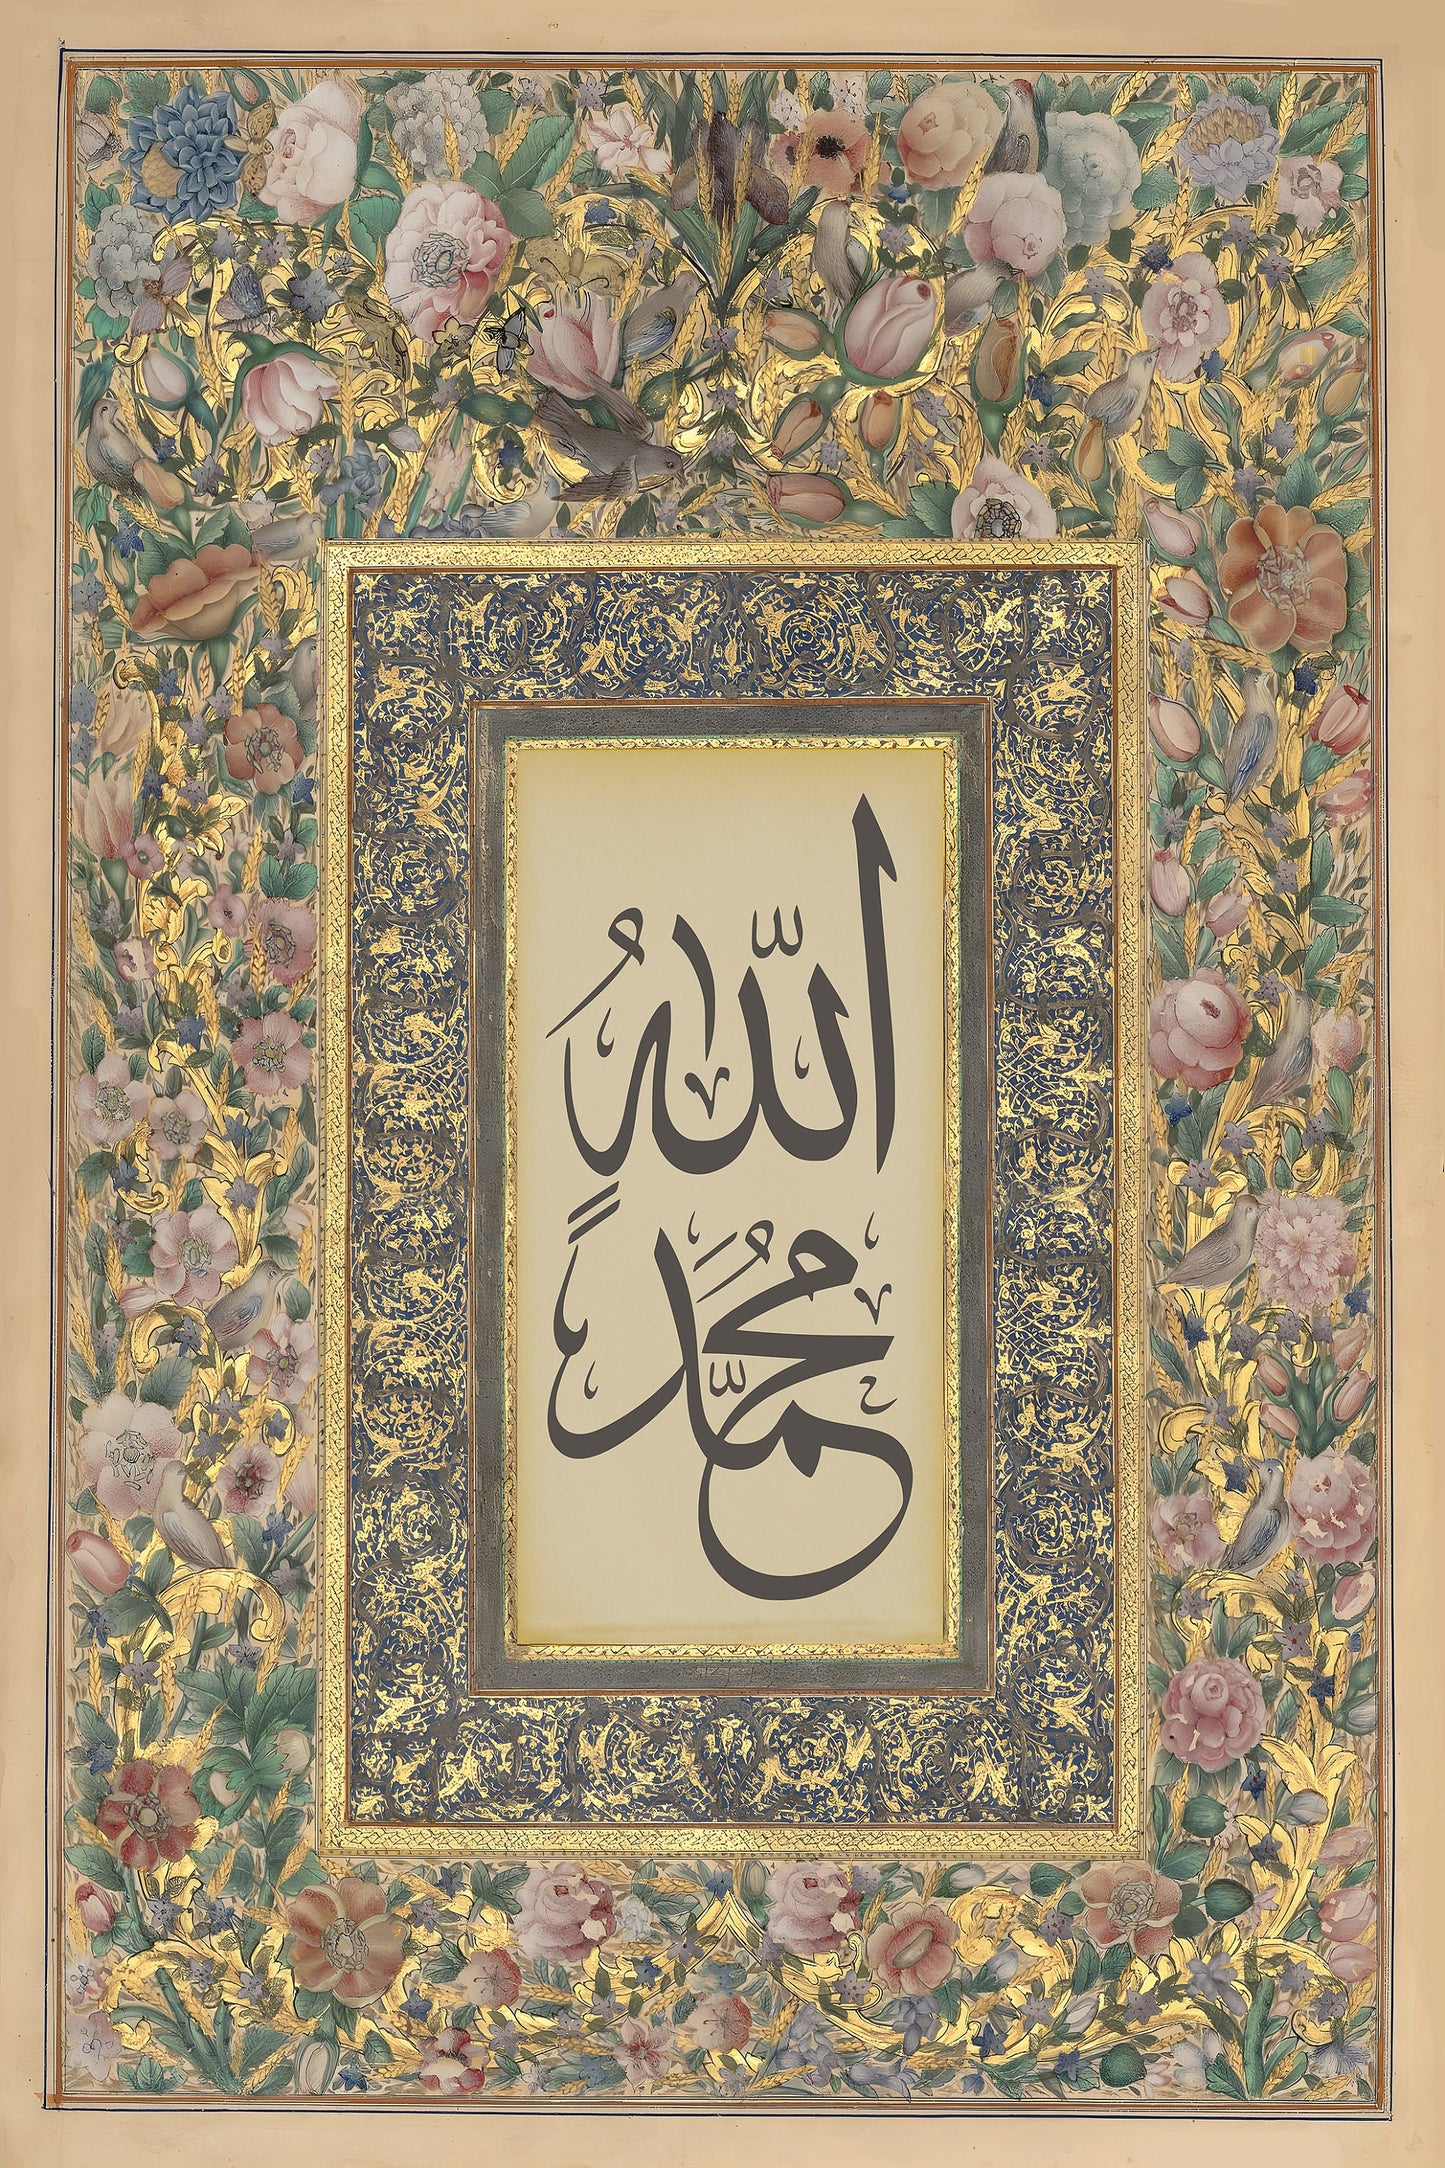 اللّٰهُ
مُحَمَّدٌ